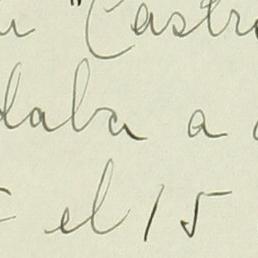 "Castr
daba a
el 15